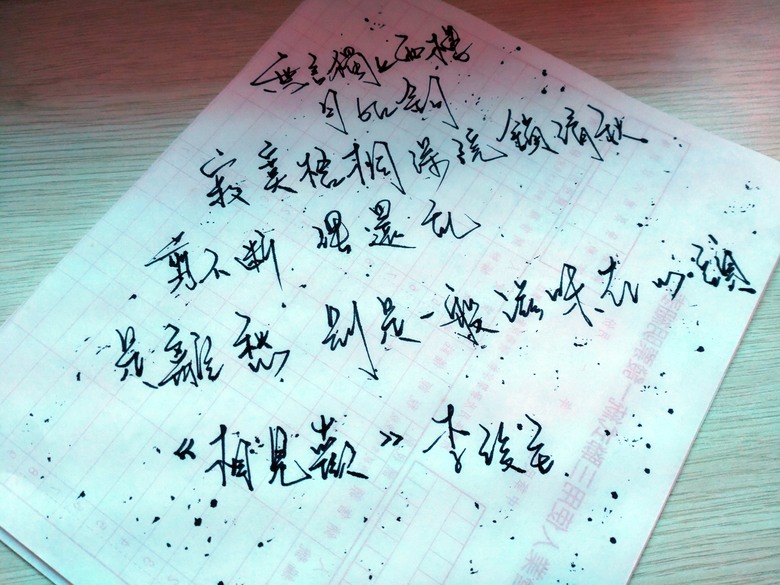 無言獨上西樓
月如鉤
寂寞梧桐深院鎖清秋
剪不断 理還乱
是離愁 別是一般滋味在心頭
《相見歡》 李後主